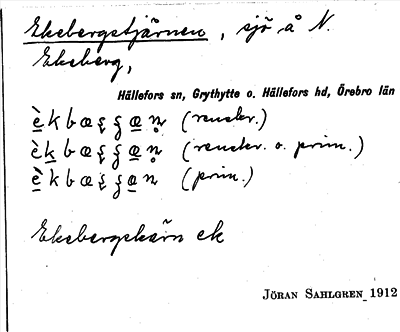 Ekebergstjärnen, sjö å N.
Ekeberg,
Hällefors sn, Grythytte o. Hällefors hd, Örebro län
(renskr.)
(renskr. o. prim.)
(prim.)
Ekebergskärn ek
JÖRAN SAHLGREN 1912